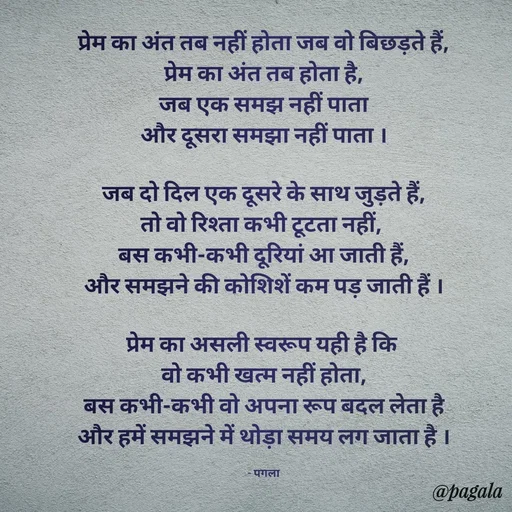 प्रेम का अंत तब नहीं होता जब वो बिछड़ते हैं,
प्रेम का अंत तब होता है,
जब एक समझ नहीं पाता
और दूसरा समझा नहीं पाता ।
जब दो दिल एक दूसरे के साथ जुड़ते हैं,
तो वो रिश्ता कभी टूटता नहीं,
बस कभी-कभी दूरियां आ जाती हैं,
और समझने की कोशिशें कम पड़ जाती हैं ।
प्रेम का असली स्वरूप यही है कि
वो कभी खत्म नहीं होता,
बस कभी-कभी वो अपना रूप बदल लेता है
और हमें समझने में थोड़ा समय लग जाता है ।
- पगला
@pagala